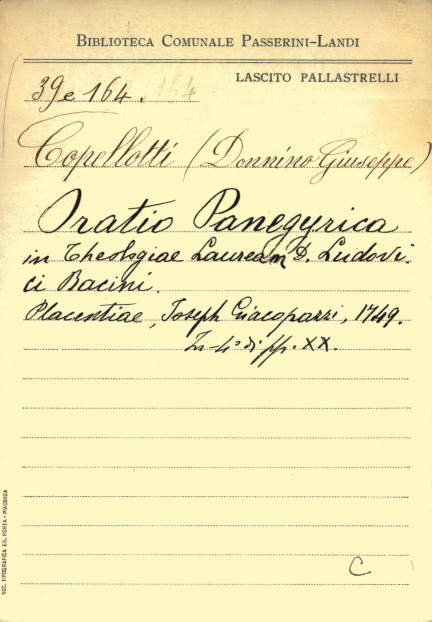 BIBLIOTECA COMUNALE PASSERINI-LANDI
LASCITO PALLASTRELLI
39e 164.
Copellotti (Donnino Giuseppe)
Oratio Panegyrica
in Theologiae Lauream D. Ludovi-
ci Bacini.
Placentiae, Joseph Giacopazzi, 1749.
In-4º di pp. XX.
C
SOC. TIPOGRAFICA ED. PORTA - PIACENZA